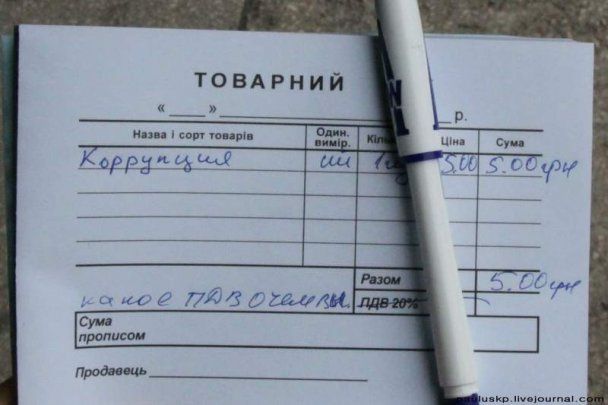 ТОВАРНИЙ
« ___ » ___ р.
Назва і сорт товарів Один. вимір. Ціна Сума
Коррупция шт 5.00 5.00грн
Разом 5.00грн
какое ПДВ о чем вы. ПДВ 20%
Сума прописом
Продавець
pauluskp.livejournal.com